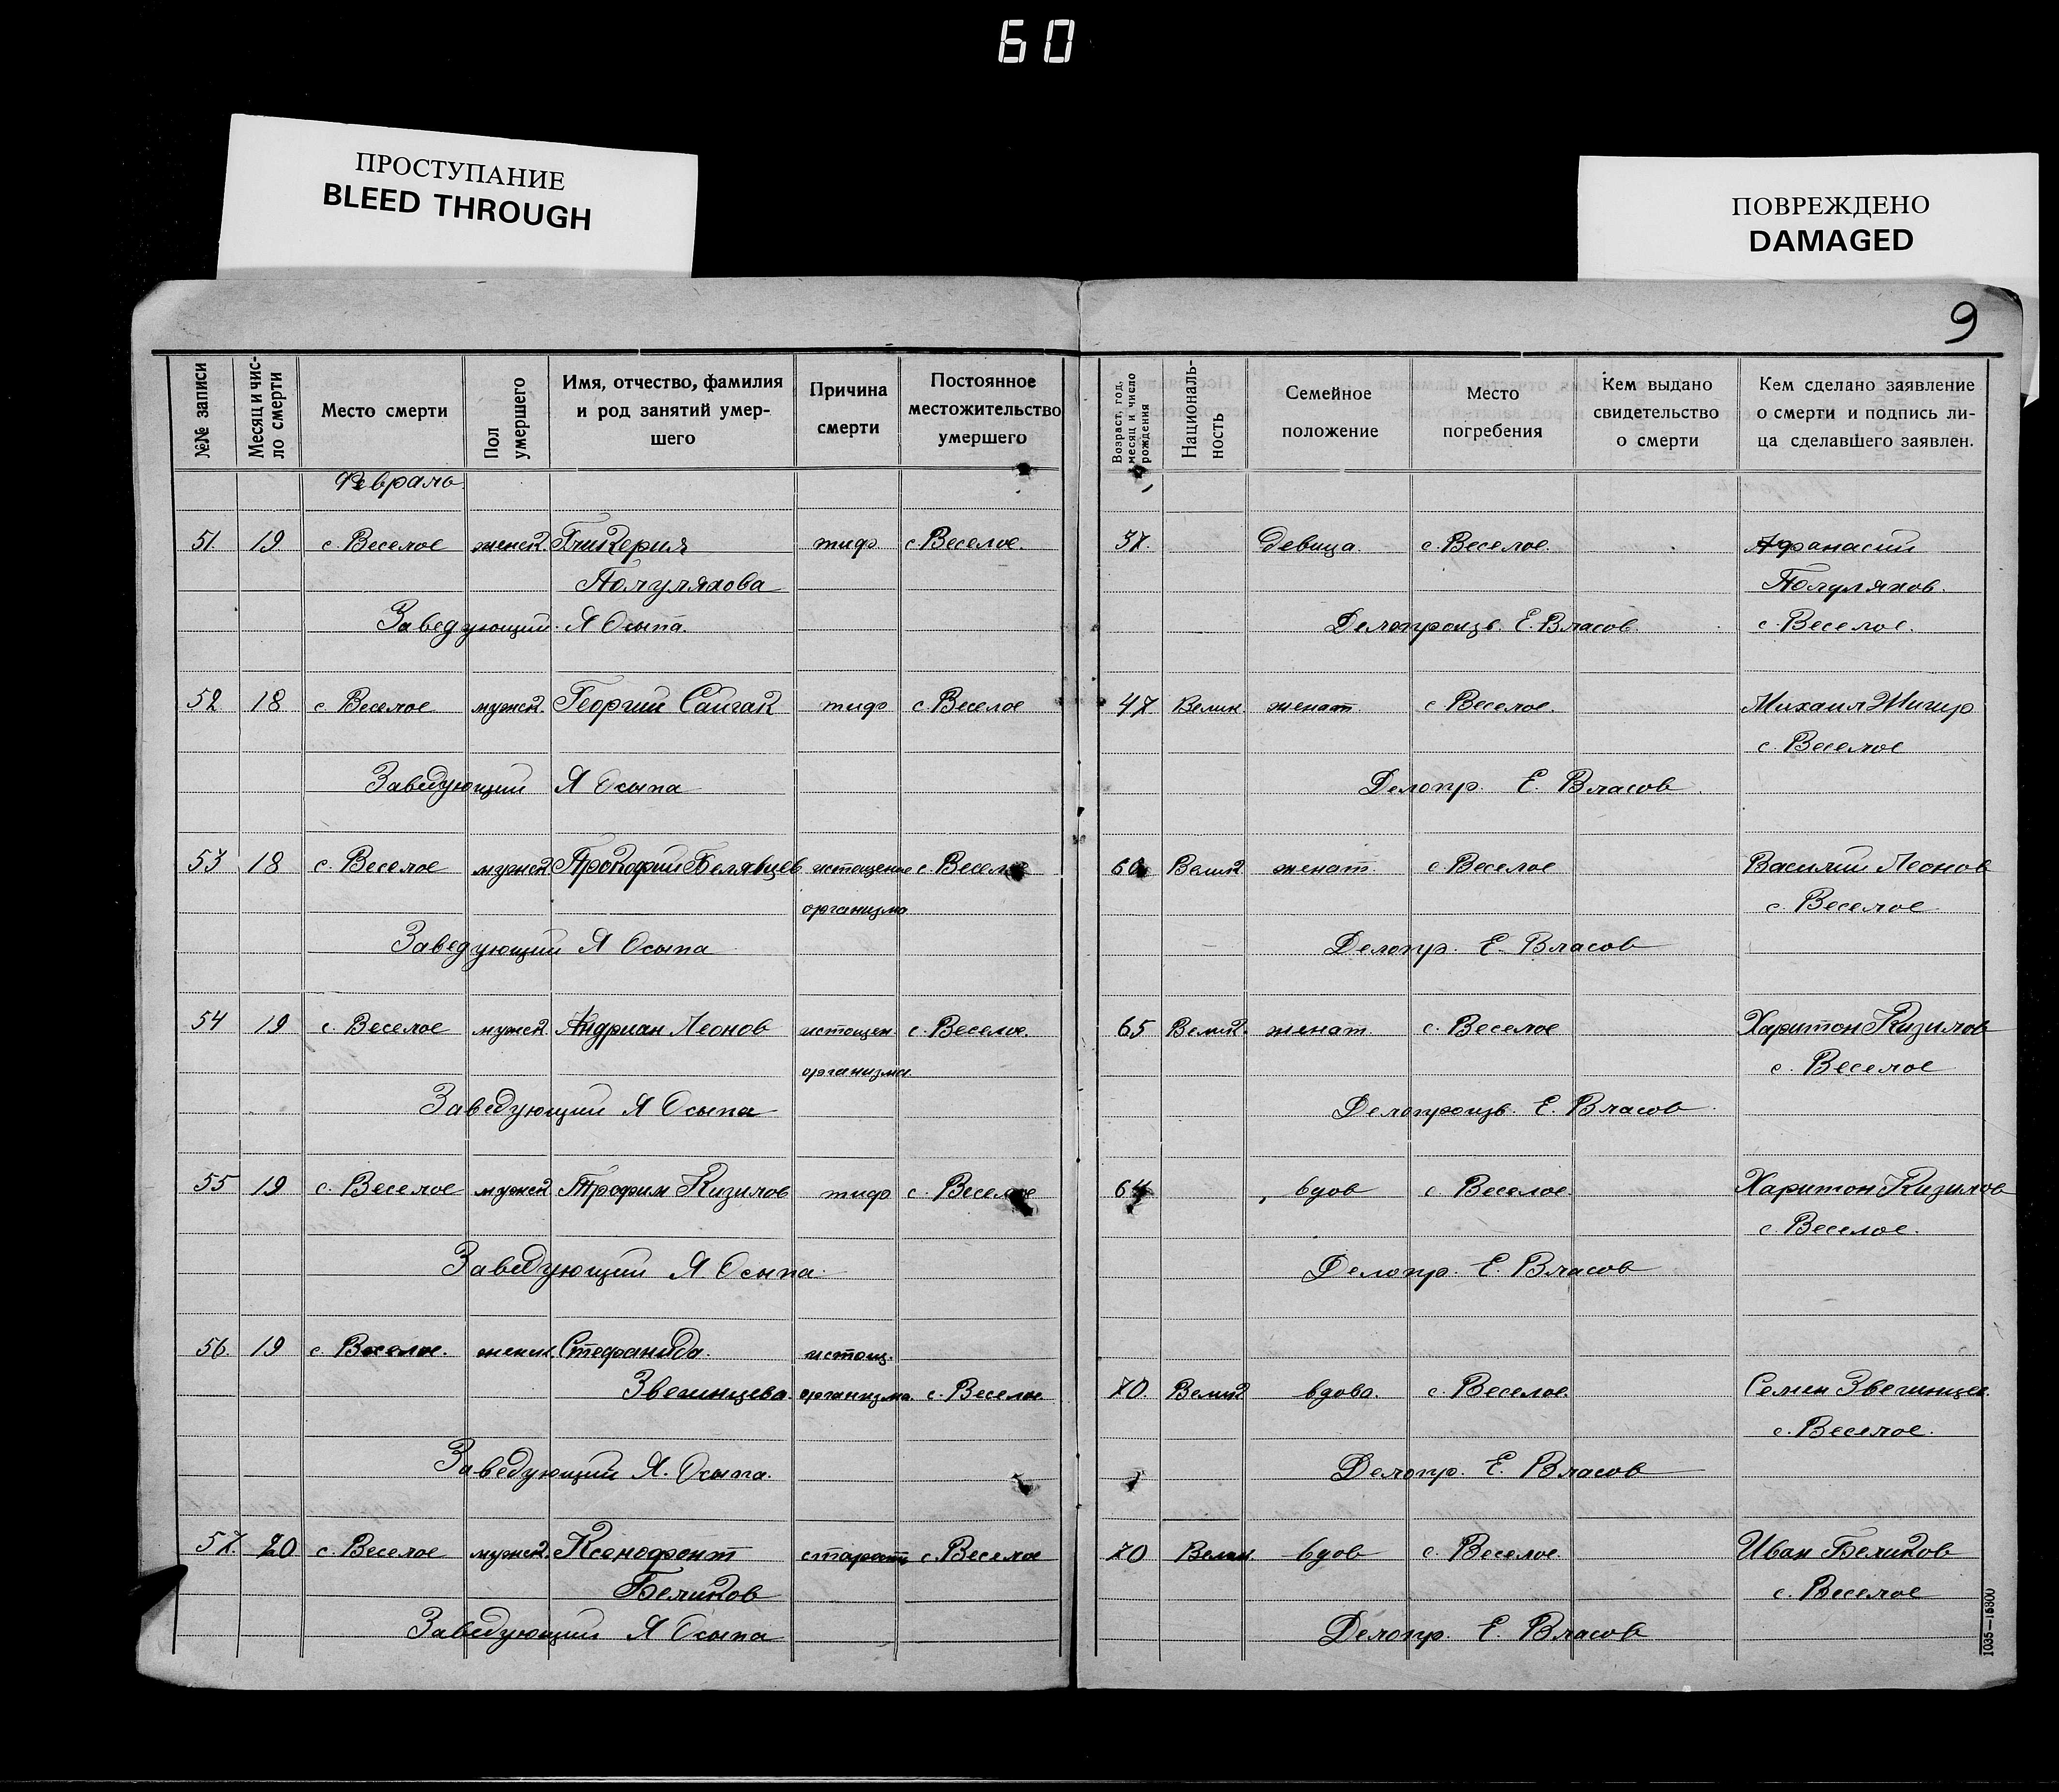 60
ПРОСТУПАНИЕ
BLEED THROUGH
ПОВРЕЖДЕНО
DAMAGED
9
№№ записи
Месяц и число смерти
Место смерти
Пол умершего
Имя, отчество, фамилия и род занятий умершего
Причина смерти
Постоянное местожительство умершего
Возраст, год, месяц и число рождения
Национальность
Семейное положение
Место погребения
Кем выдано свидетельство о смерти
Кем сделано заявление о смерти и подпись лица сделавшего заявлен.
Февраль
51. 19 с Веселое женск. Гликерия тиф с Веселое. 37. девица. с. Веселое. Афанасий
Полуляхова Полуляхов.
Заведующий Я Осыпа. Делопроизв. Е. Власов. с. Веселое.
52 18 с Веселое мужск. Георгий Сайгак тиф с Веселое 47 Велик. женат. с Веселое. Михаил Жигир
с. Веселое
Заведующий Я Осыпа Делопр. Е. Власов.
53 18 с. Веселое мужск. Прокофий Белявцев истощение с Веселое 60 Велик женат. с. Веселое Василий Леонов
организма с Веселое
Заведующий Я Осыпа Делопр. Е. Власов
54 19 с. Веселое мужск Андриан Леонов истощен с Веселое. 65 Велик. женат. с. Веселое Харитон Кизилов
организма с. Веселое
Заведующий Я Осыпа Делопроизв. Е. Власов.
55 19 с. Веселое мужск Трофим Кизилов тиф с. Веселое 64 вдов с. Веселое. Харитон Кизилов
с. Веселое.
Заведующий Я Осыпа. Делопр. Е. Власов
56. 19 с. Веселое. женск. Стефанида. истощ.
Звегинцева. организма. с. Веселое 70. Велик вдова. с. Веселое. Семен Звегинцев.
с. Веселое.
Заведующий Я. Осыпа. Делопр. Е. Власов
57. 20 с. Веселое мужск. Ксенофонт старость с. Веселое 70 Велик вдов с. Веселое. Иван Беликов
Беликов с. Веселое
Заведующий Я Осыпа Делопр. Е. Власов
1035—15800